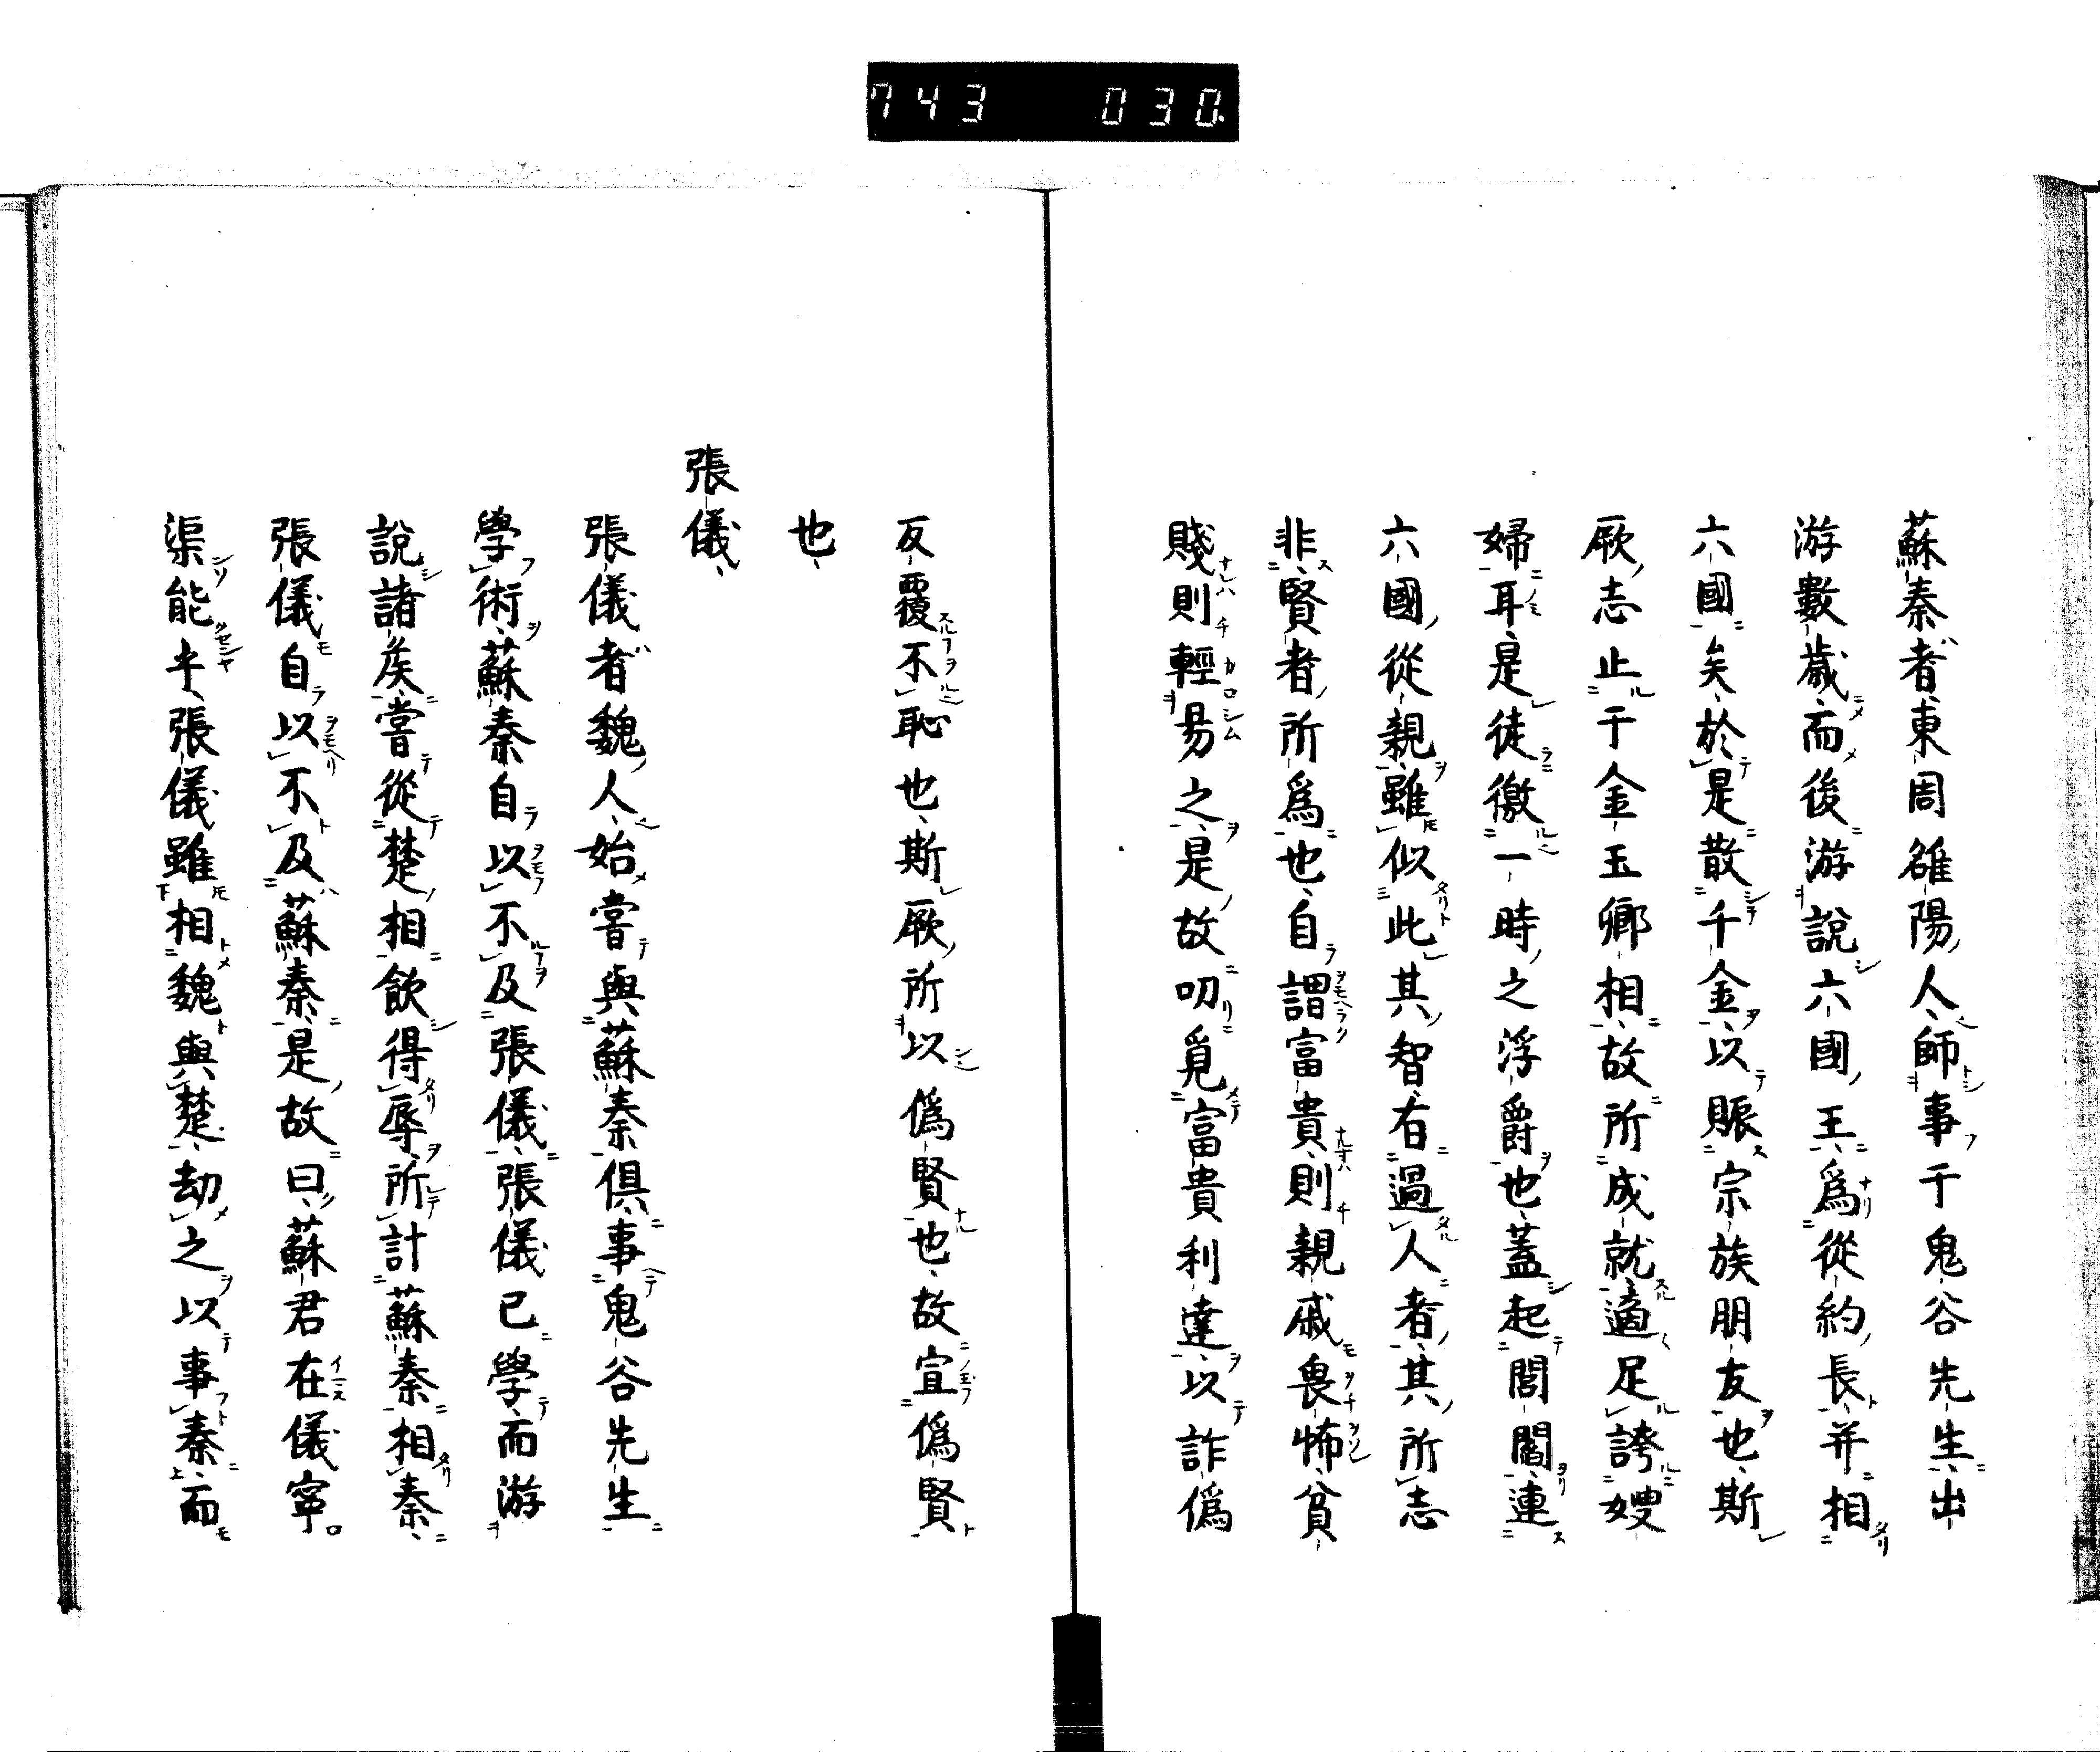 743 030
蘇秦者東周雒陽人師事于鬼谷先生出
游數歲而後游說六國王爲從約長并相
六國矣於是散千金以賑宗族朋友也斯
厥志止于金玉卿相故所成就適足誇嫂
婦耳是徒徼一時之浮爵也蓋起閭閻連
六國從親雖似此其智有過人者其所志
非賢者所爲也自謂富貴則親戚畏怖貧
賤則輕易之是故叨覓富貴利達以詐僞
反覆不恥也斯厥所以僞賢也故宜僞賢
也
張儀
張儀者魏人始嘗與蘇秦俱事鬼谷先生
學術蘇秦自以不及張儀張儀已學而游
說諸矦嘗從楚相飲得辱所計蘇秦相秦
張儀自以不及蘇秦是故曰蘇君在儀寧
渠能乎張儀雖相魏與楚劫之以事秦而